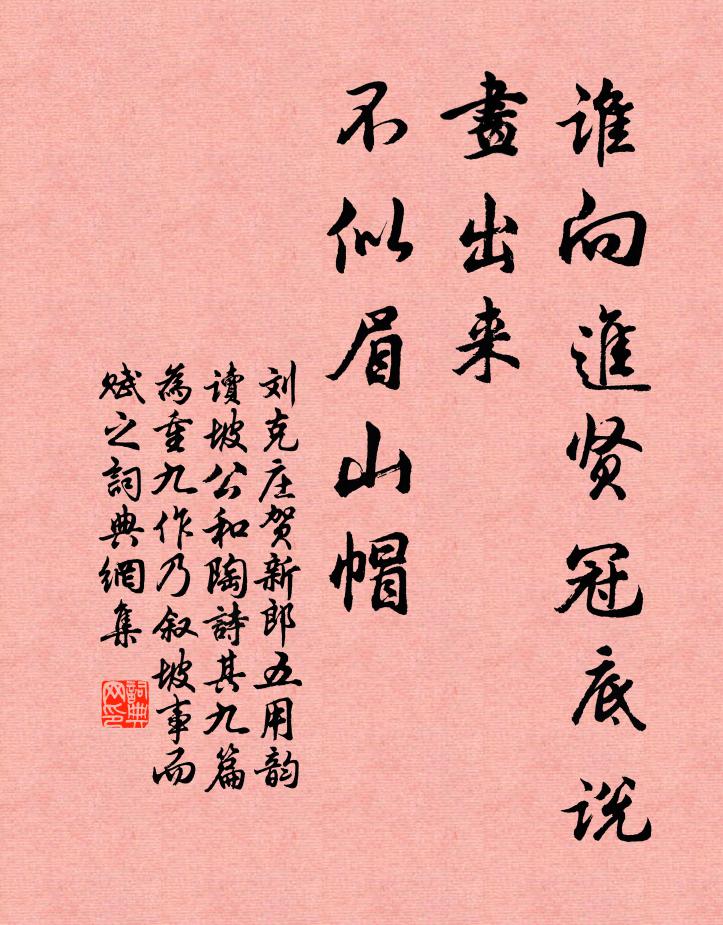 谁向進贤冠底説
畫出来
不似眉山帽
刘克庄贺新郎五用韵
讀坡公和陶詩其九篇
為重九作乃叙坡事而
赋之詞典網集
詞典网印